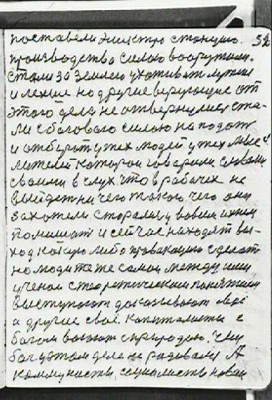 поставели энистро станцию. 52
производство силою вооружили.
Стали за Землею ухаживат лучше
и лехше но другие верующие от
этого дела не отвернулись ста-
ли с богового силою на подож
и отберит у тех людей у тех мыс
лителей которои говорили словами
своими в слух что в рабочех не
выйдет ни чего такого чего они
захотели старались вовсем ихним
помешат и сейчас находят вы-
ход какую либо правакацию сделат
но люди те же самои между ими
ученои с теоретическим понятием
выступают доказовают свое
а другие свое. Капиталисты с
богом воюют с природою. Чему
богу этом деле не радовался А
коммунисты, социалисты новои